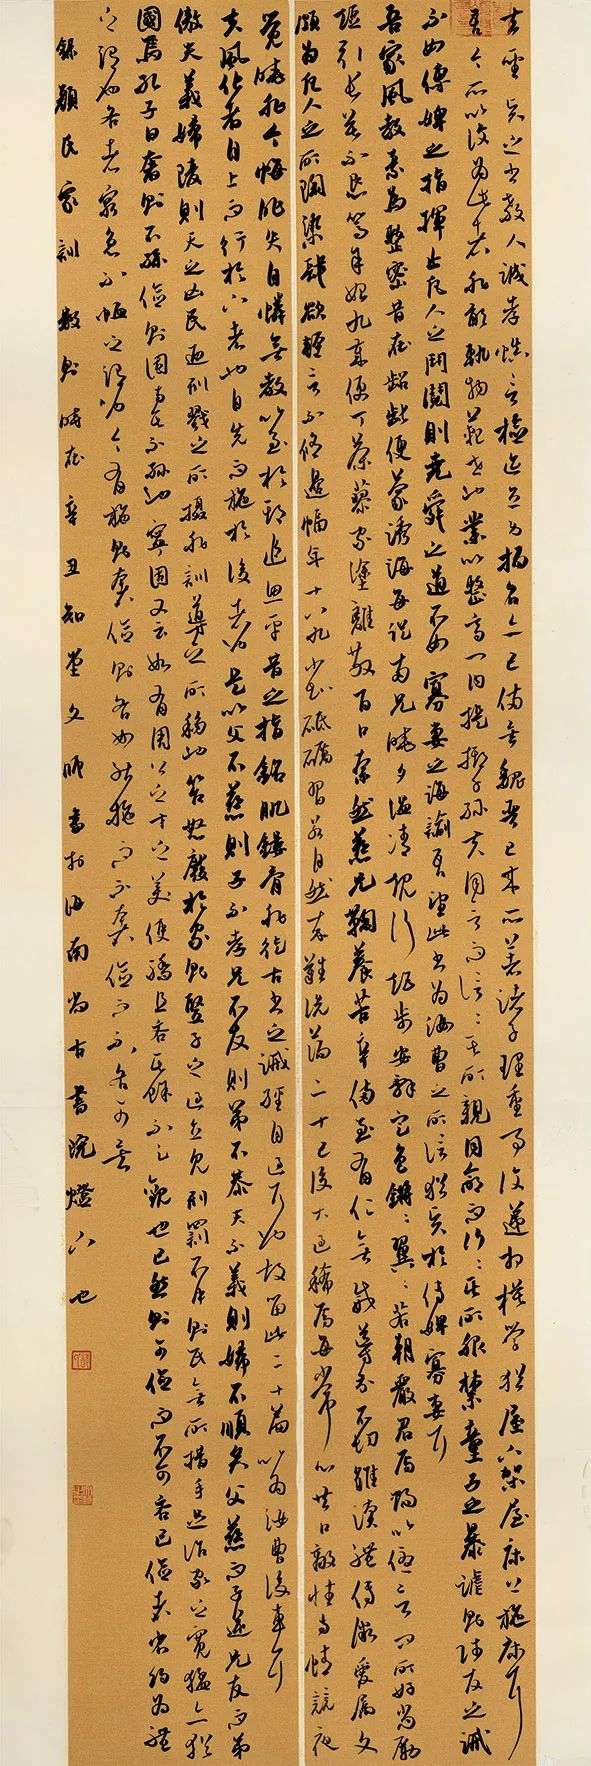 夫聖賢之書教人誠孝慎言檢跡立身揚名亦已備矣魏晉已來所著諸子理重事復遞相模學猶屋下架屋床上施床耳
吾今所以復為此者非敢軌物範世也業以整齊門內提撕子孫夫同言而信信其所親同命而行行其所服禁童子之暴謔則師友之誡
不如傅婢之指揮止凡人之鬥鬩則堯舜之道不如寡妻之誨諭吾望此書為汝曹之所信猶賢於傅婢寡妻耳
吾家風教素為整密昔在齠齔便蒙誘誨每從兩兄曉夕溫凊規行矩步安辭定色鏘鏘翼翼若朝嚴君焉賜以優言問所好尚勵
短引長莫不懇篤年始九歲便丁荼蓼家塗離散百口索然慈兄鞠養苦辛備至有仁無威導示不切雖讀禮傳微愛屬文
頗為凡人之所陶染肆欲輕言不修邊幅年十八九少知砥礪習若自然卒難洗蕩二十已後大過稀焉每常心共口敵性與情競夜
覺曉非今悔昨失自憐無教以至於斯追思平昔之指銘肌鏤骨非徒古書之誡經目過耳也故留此二十篇以為汝曹後車耳
夫風化者自上而行於下者也自先而施於後者也是以父不慈則子不孝兄不友則弟不恭夫不義則婦不順矣父慈而子逆兄友而弟
傲夫義婦陵則天之凶民乃刑戮之所攝非訓導之所移也笞怒廢於家則豎子之過立見刑罰不中則民無所措手足治家之寬猛亦猶
國焉孔子曰奢則不孫儉則固與其不孫也寧固又云如有周公之才之美使驕且吝其餘不足觀也已然則可儉而不可吝已儉者省約為禮
之謂也吝者窮急不恤之謂也今有施則奢儉則吝如能施而不奢儉而不吝可矣
錄顏氏家訓數則時在辛丑知堂文師書於海南尚古書院燈下也